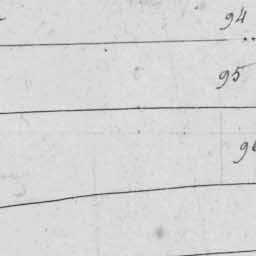 94
95